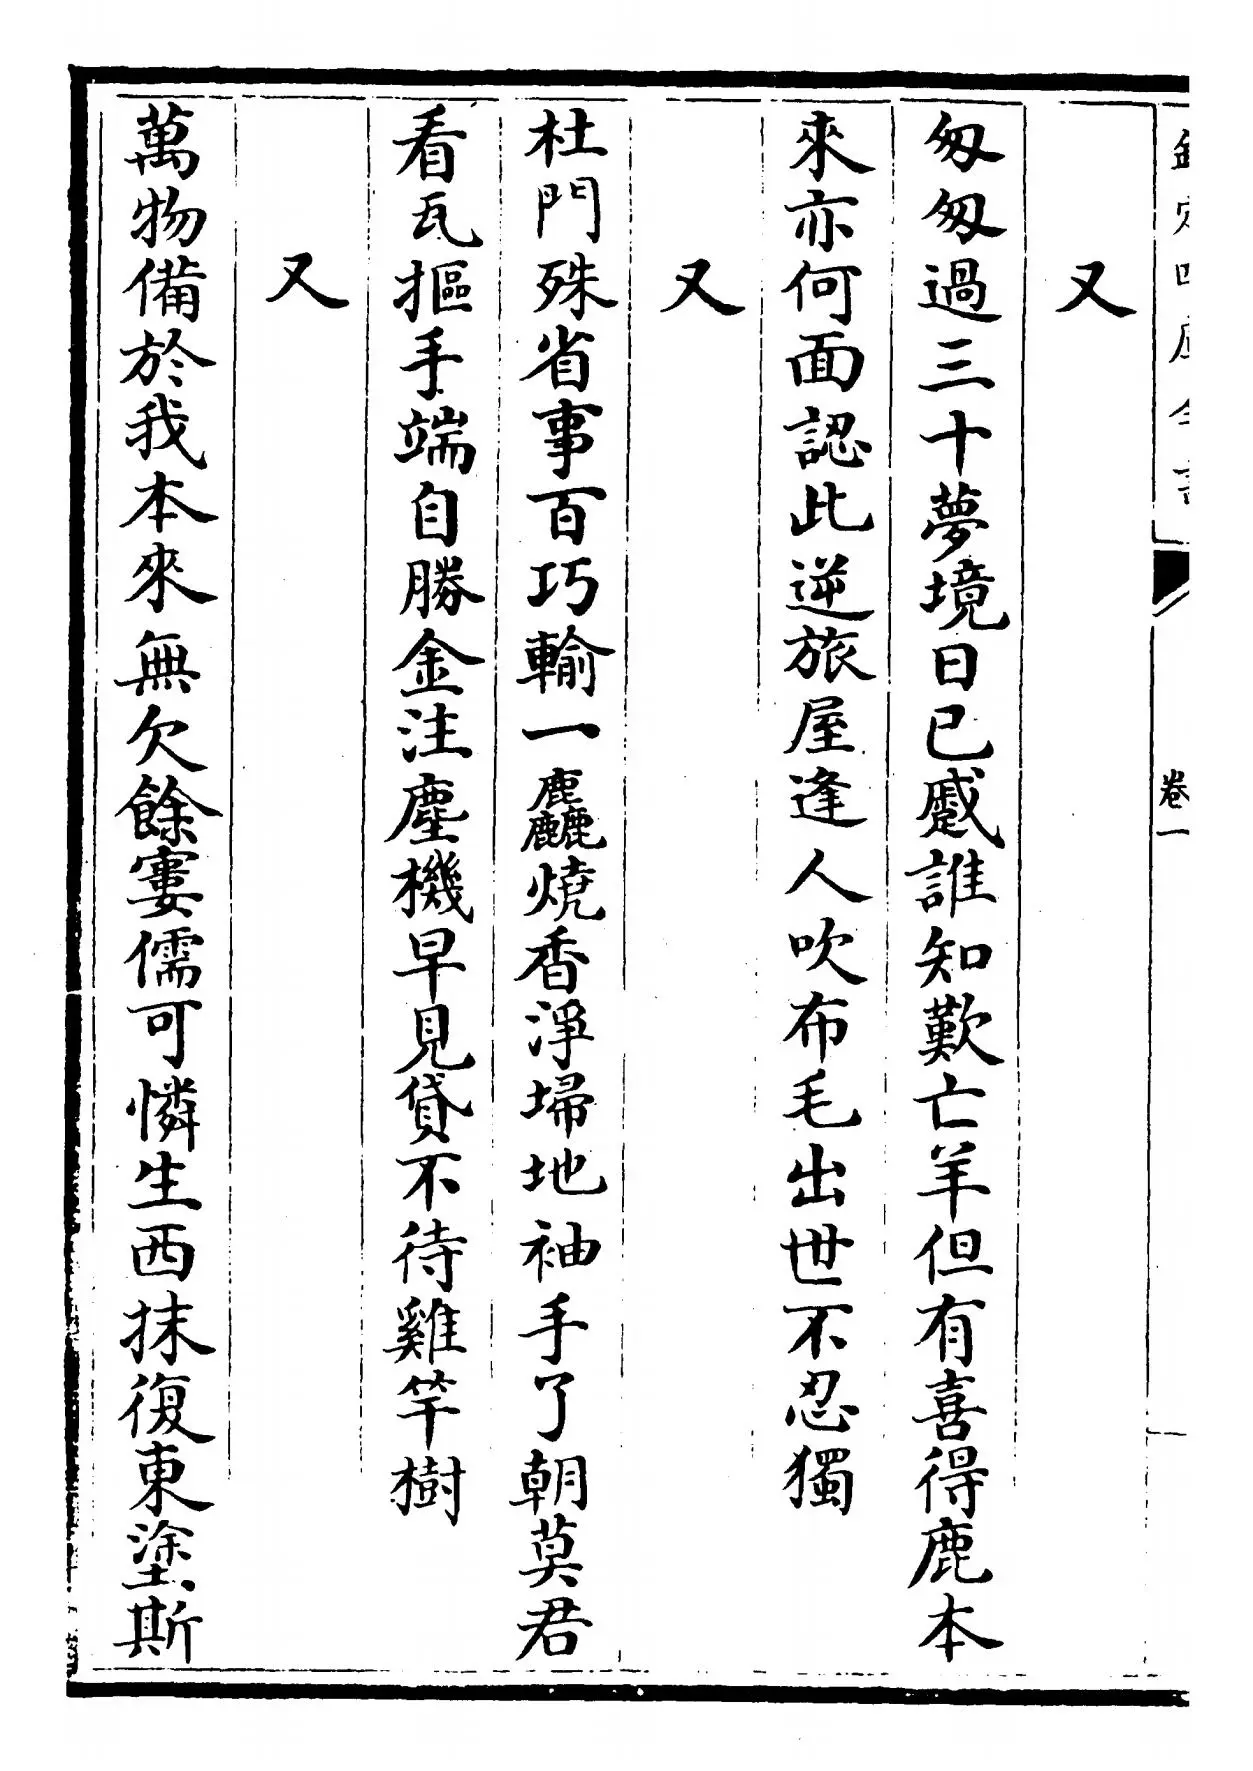 欽定四庫全書
卷一
又
匆匆過三十夢境日已蹙誰知歎亡羊但有喜得鹿本
來亦何面認此逆旅屋逢人吹布毛出世不忍獨
又
杜門殊省事百巧輸一麤燒香淨埽地袖手了朝莫君
看瓦摳手端自勝金注塵機早見貸不待雞竿樹
又
萬物備於我本來無欠餘窶儒可憐生西抹復東塗斯